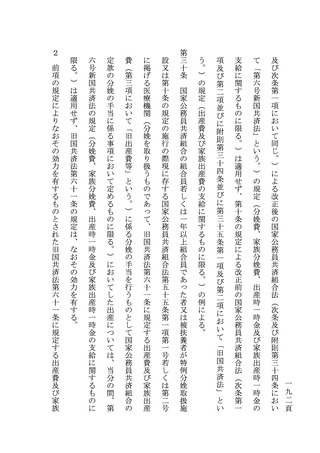 一九二頁
及び次条第一項において同じ。）による改正後の国家公務員共済組合法（次条及び附則第三十四条におい
て「第六号新国共済法」という。）の規定（分娩費、家族分娩費、出産時一時金及び家族出産時一時金の
支給に関するものに限る。）は適用せず、第十条の規定による改正前の国家公務員共済組合法（次条第一
項及び第二項並びに附則第三十四条並びに第三十五条第一項及び第二項において「旧国共済法」とい
う。）の規定（出産費及び家族出産費の支給に関するものに限る。）の例による。
第三十条　国家公務員共済組合の組合員若しくは一年以上組合員であった者又は被扶養者が特例分娩取扱施
設又は第十条の規定の施行の際現に存する国家公務員共済組合法第五十五条第一項第一号若しくは第二号
に掲げる医療機関（分娩を取り扱うものであって、旧国共済法第六十一条に規定する出産費及び家族出産
費（第三項において「旧出産費等」という。）に係る分娩の手当を行うものとして国家公務員共済組合の
定款の分娩の手当に係る事項において定めるものに限る。）においてした出産については、当分の間、第
六号新国共済法の規定（分娩費、家族分娩費、出産時一時金及び家族出産時一時金の支給に関するものに
限る。）は適用せず、旧国共済法第六十一条の規定は、なおその効力を有する。
２　前項の規定によりなおその効力を有するものとされた旧国共済法第六十一条に規定する出産費及び家族